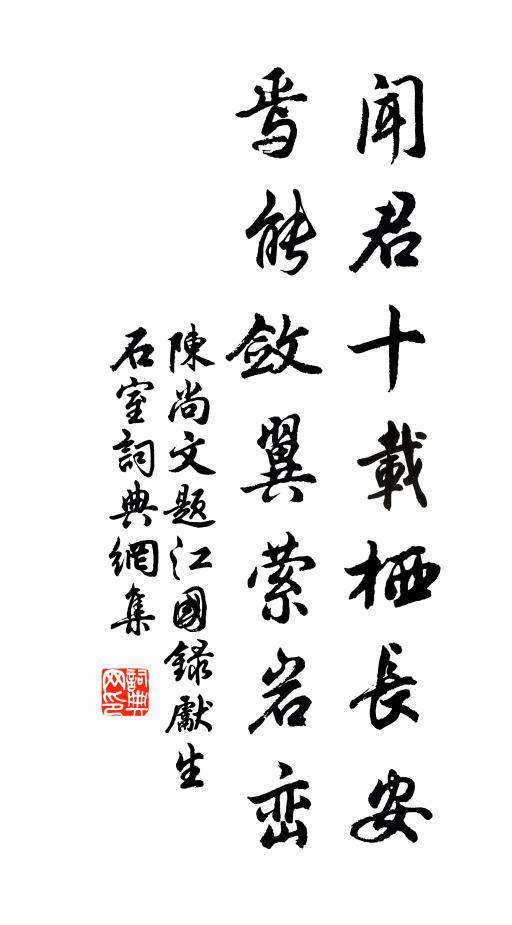 闻君十載栖長安
焉能斂翼萦岩峦
陳尚文题江國録獻生
石室詞典網集
詞典网印